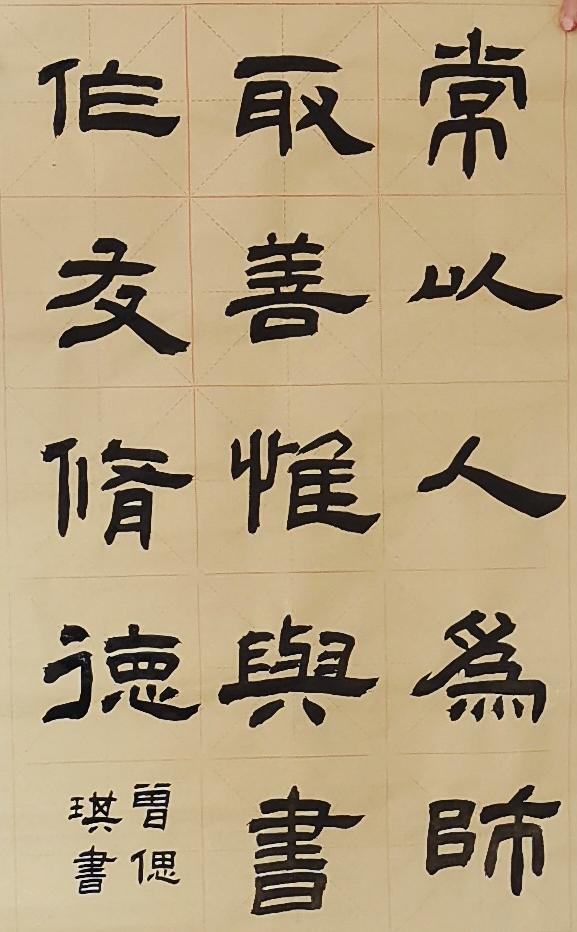 常以人爲師
取善惟與書
作友脩德
曽偲
琪書